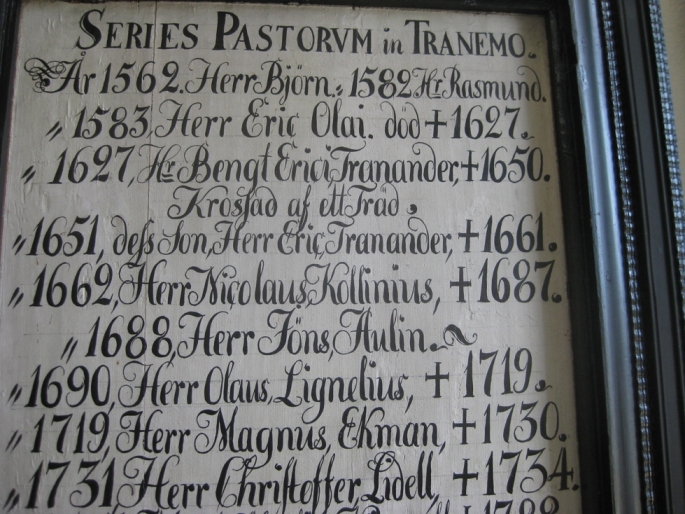 SERIES PASTORVM in TRANEMO.
År 1562. Herr Björn. „ 1582 Hr Rasmund.
„ 1583, Herr Eric Olai. död + 1627.
„ 1627, Hr Bengt Erici Tranander, + 1650.
Krossad af ett Träd.
„ 1651, dess Son, Herr Eric, Tranander, + 1661.
„ 1662, Herr Nicolaus, Kollinius, + 1687.
„ 1688, Herr Jöns, Hulin.
„ 1690, Herr Olaus, Lignelius, + 1719.
„ 1719, Herr Magnus, Ekman, + 1730.
„ 1731 Herr Christoffer, Lidell, + 1734.